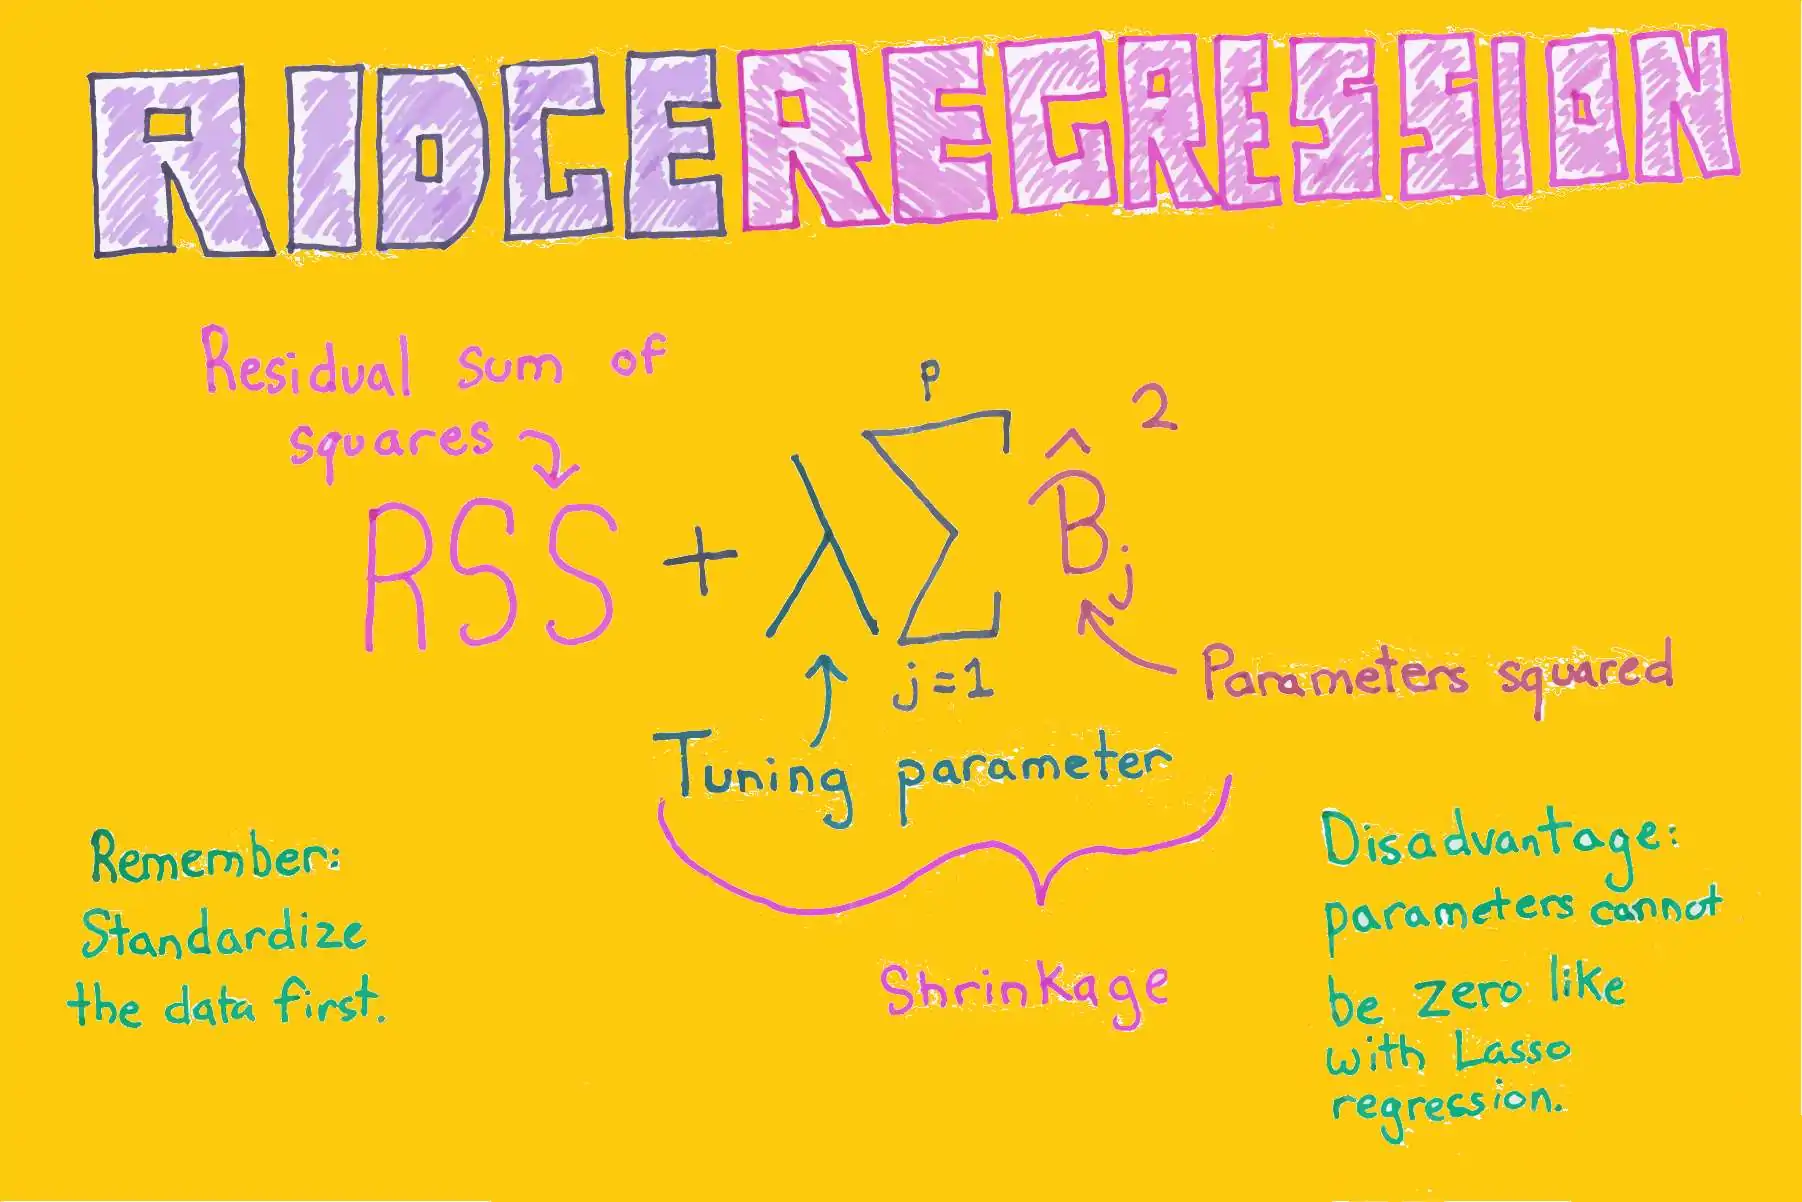 RIDGE REGRESSION
Residual sum of
squares
RSS + λ Σ B̂j 2
p
j=1
Parameters squared
Tuning parameter
Shrinkage
Remember:
Standardize
the data first.
Disadvantage:
parameters cannot
be zero like
with Lasso
regression.